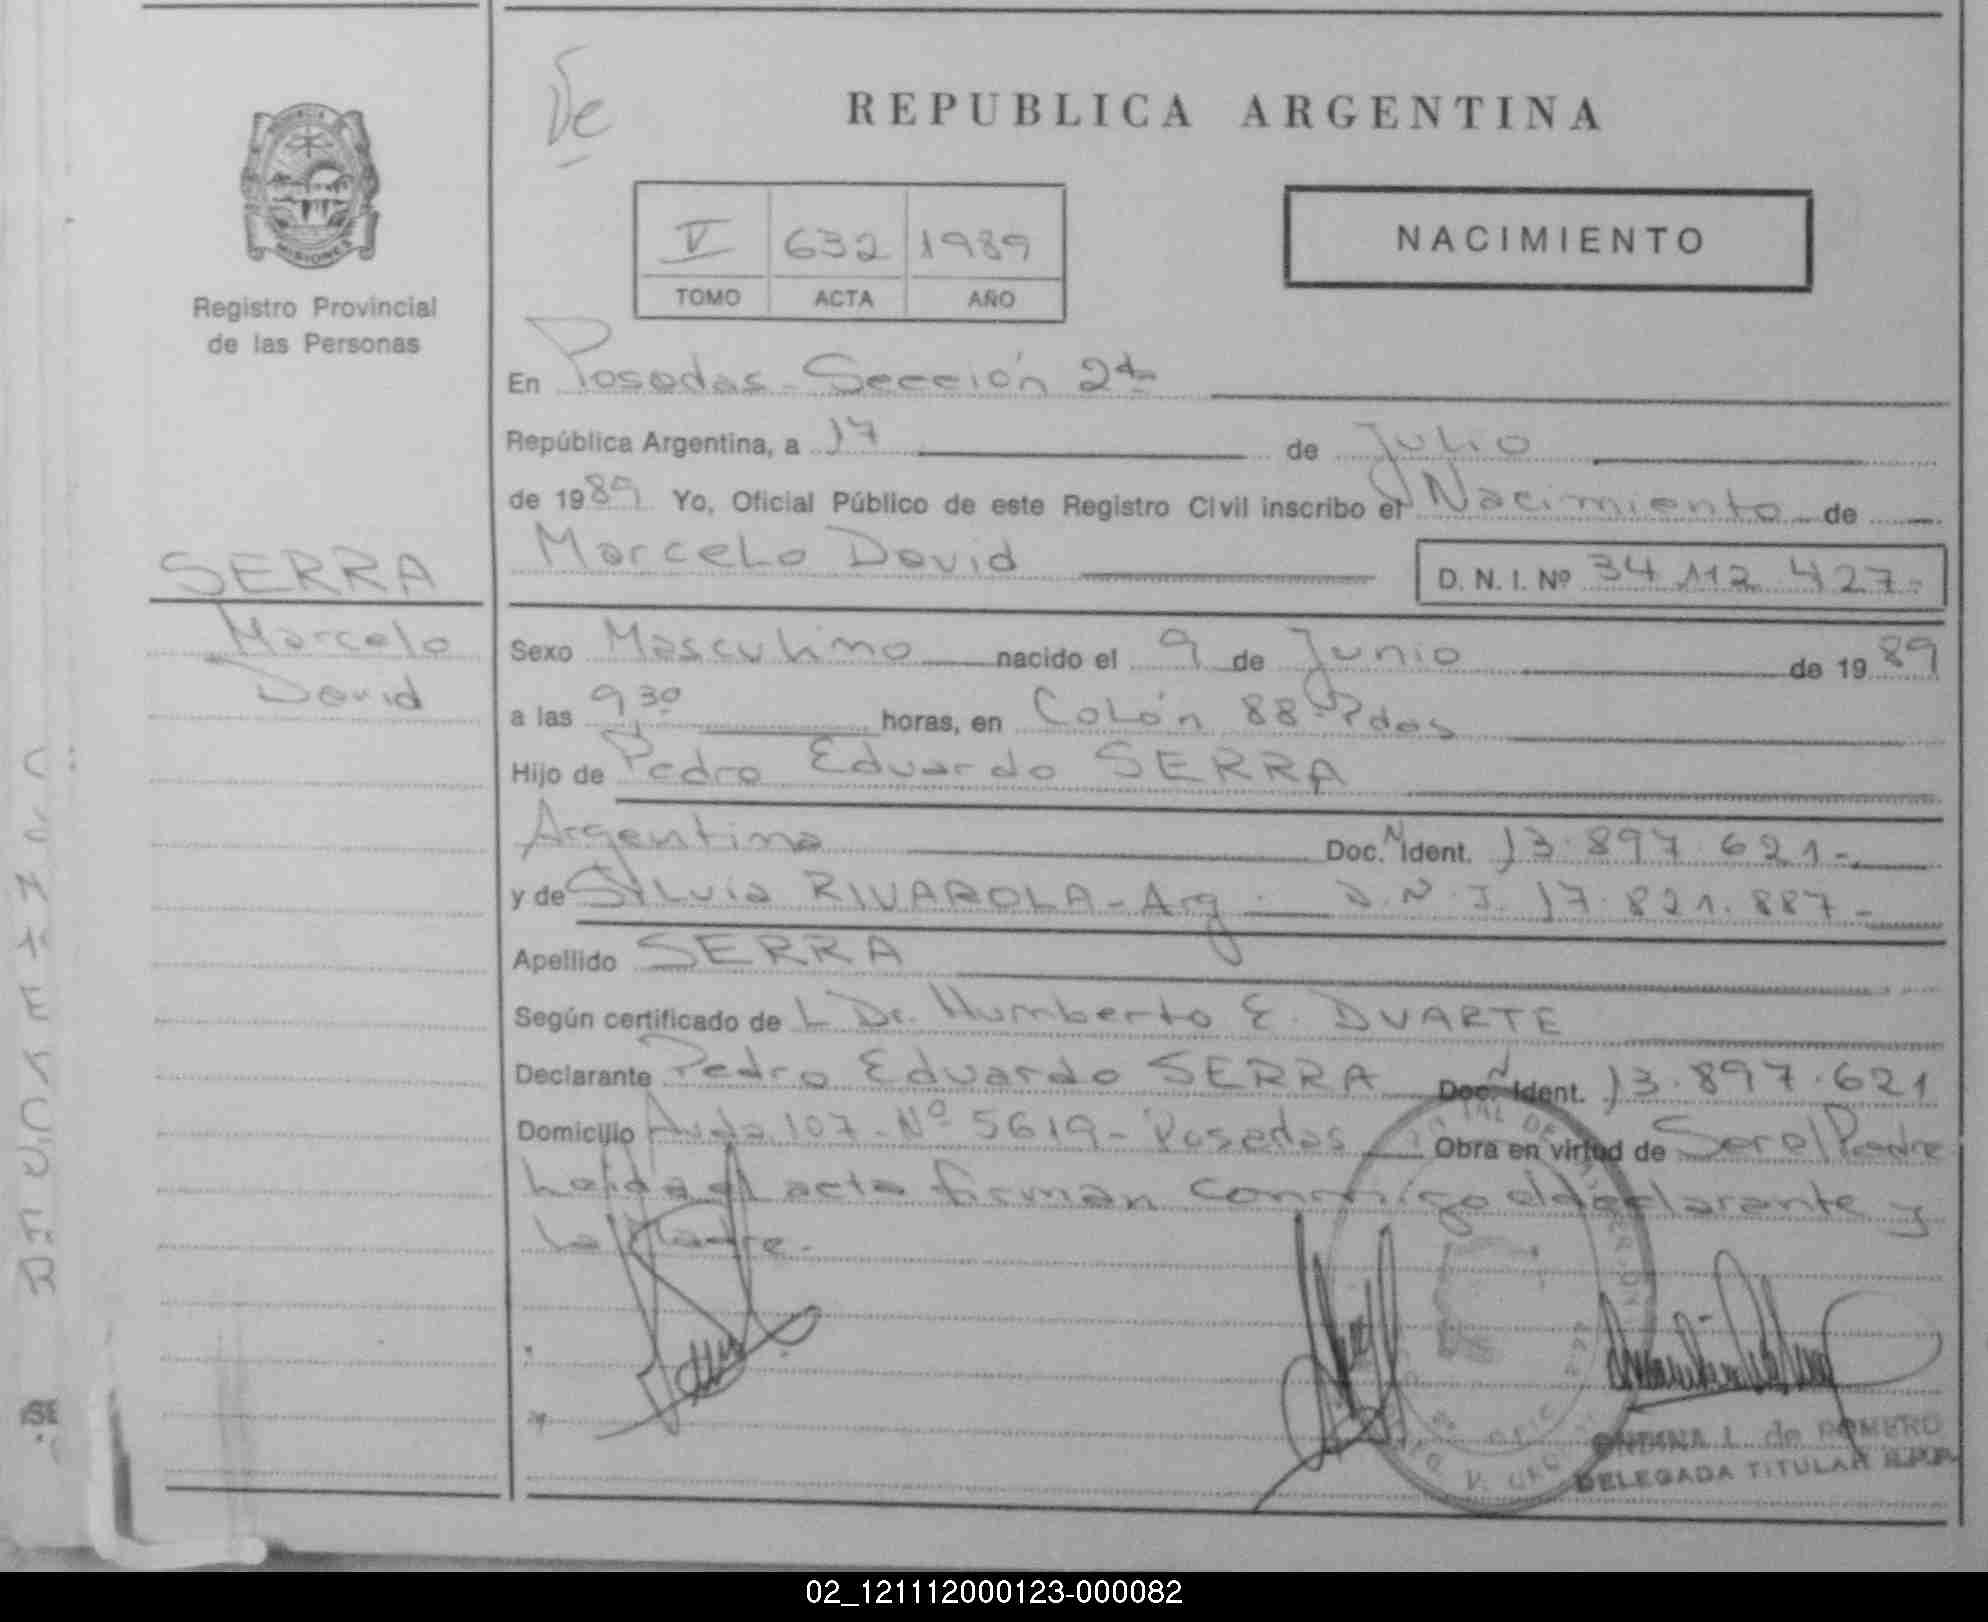 De
REPUBLICA ARGENTINA
MISIONES
Registro Provincial
de las Personas
V 632 1989
TOMO ACTA AÑO
NACIMIENTO
En Posadas - Sección 2da
República Argentina, a 17 de Julio
de 1989 Yo, Oficial Público de este Registro Civil inscribo el Nacimiento de
Marcelo David D. N. I. Nº 34.112.427.-
SERRA
Marcelo
David
Sexo Masculino nacido el 9 de Junio de 1989
a las 9 30 horas, en Colón 88 - Pdas
Hijo de Pedro Eduardo SERRA
Argentino Doc. N Ident. 13.897.621-
y de Sylvia RIVAROLA - Arg. D.N.I. 17.821.887-
Apellido SERRA
Según certificado de L Dr. Humberto E. DUARTE
Declarante Pedro Eduardo SERRA Doc. N Ident. 13.897.621
Domicilio Avda 107 - Nº 5619 - Posadas Obra en virtud de Ser el Padre
Leida el acta firman conmigo el declarante y
la Madre.-
ONDINA L. de ROMERO
DELEGADA TITULAR R.P.P.
02_121112000123-000082